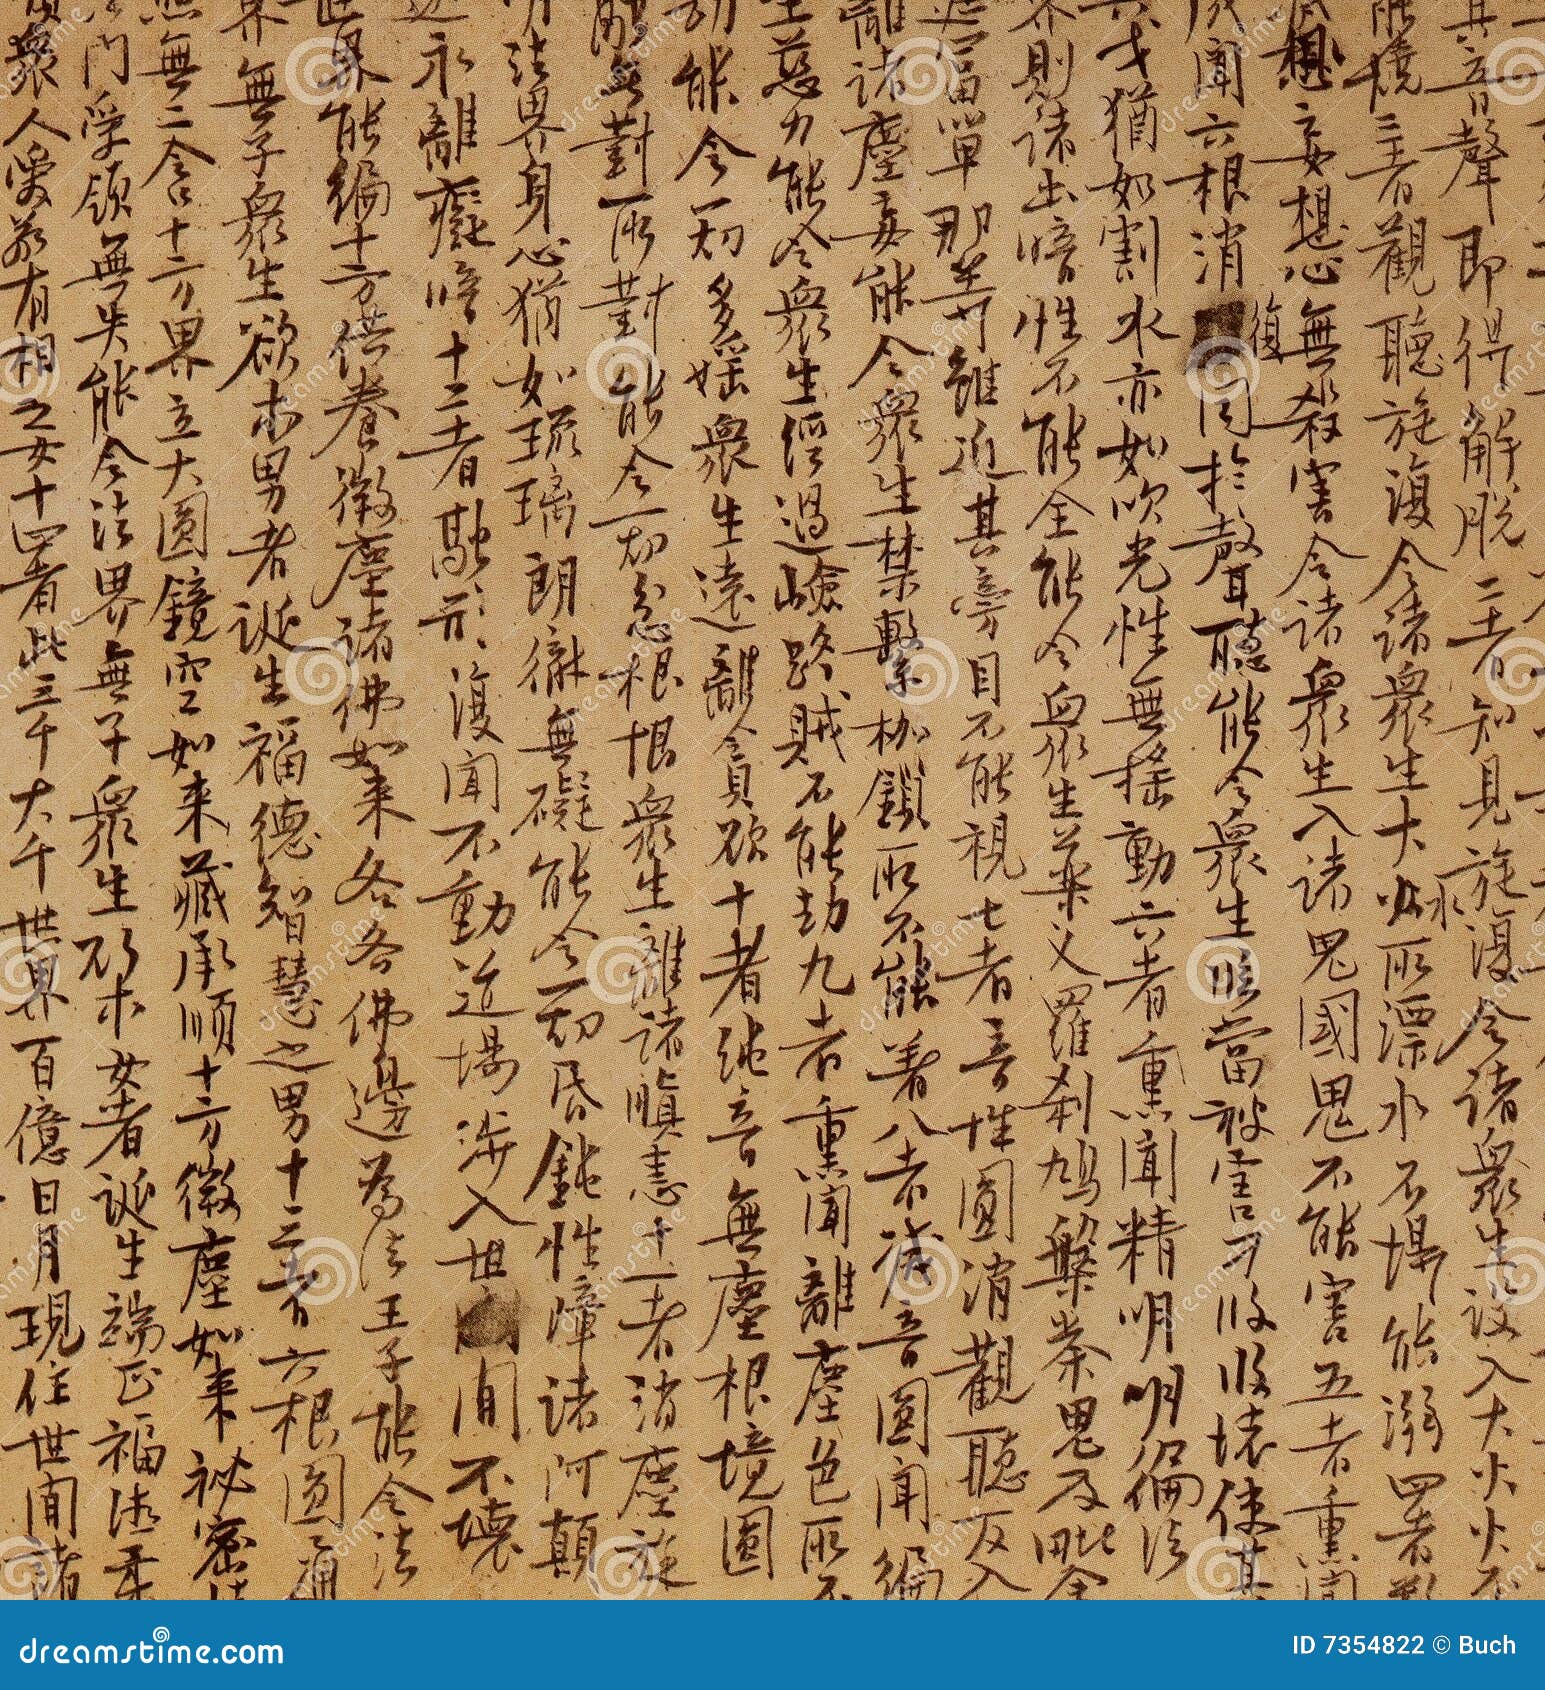 其音聲即得解脫二者知見旋復令諸眾生設入大火火不
能燒三者觀聽旋復令諸眾生大水所漂水不能溺四者斷
想妄想心無殺害令諸眾生入諸鬼國鬼不能害五者熏聞
成聞六根消復同於聲聽能令眾生臨當被害刀段段壞使其
猶如割水亦如吹光性無搖動六者熏聞精明明徧法
界則諸幽暗性不能全能令眾生藥叉羅剎鳩槃荼鬼及毗舍
遮富單那等雖近其旁目不能視七者音性圓消觀聽反入
離諸塵妄能令眾生禁繫枷鎖所不能著八者滅音圓聞徧
生慈力能令眾生經過嶮路賊不能劫九者熏聞離塵色所不
劫能令一切多婬眾生遠離貪欲十者純音無塵根境圓
無對所對能令一切忿恨眾生離諸瞋恚十一者消塵旋
明法界身心猶如琉璃朗徹無礙能令一切昏鈍性障諸阿顛
永離癡暗十二者融形復聞不動道場涉入世間不壞
世界能徧十方供養微塵諸佛如來各各佛邊為法王子能令法
界無子眾生欲求男者誕生福德智慧之男十三者六根圓通
無二含十方界立大圓鏡空如來藏承順十方微塵如來祕密法
門受領無失能令法界無子眾生欲求女者誕生端正福德柔
眾人愛敬有相之女十四者此三千大千世界百億日月現住世間諸
dreamstime.com
ID 7354822 © Buch